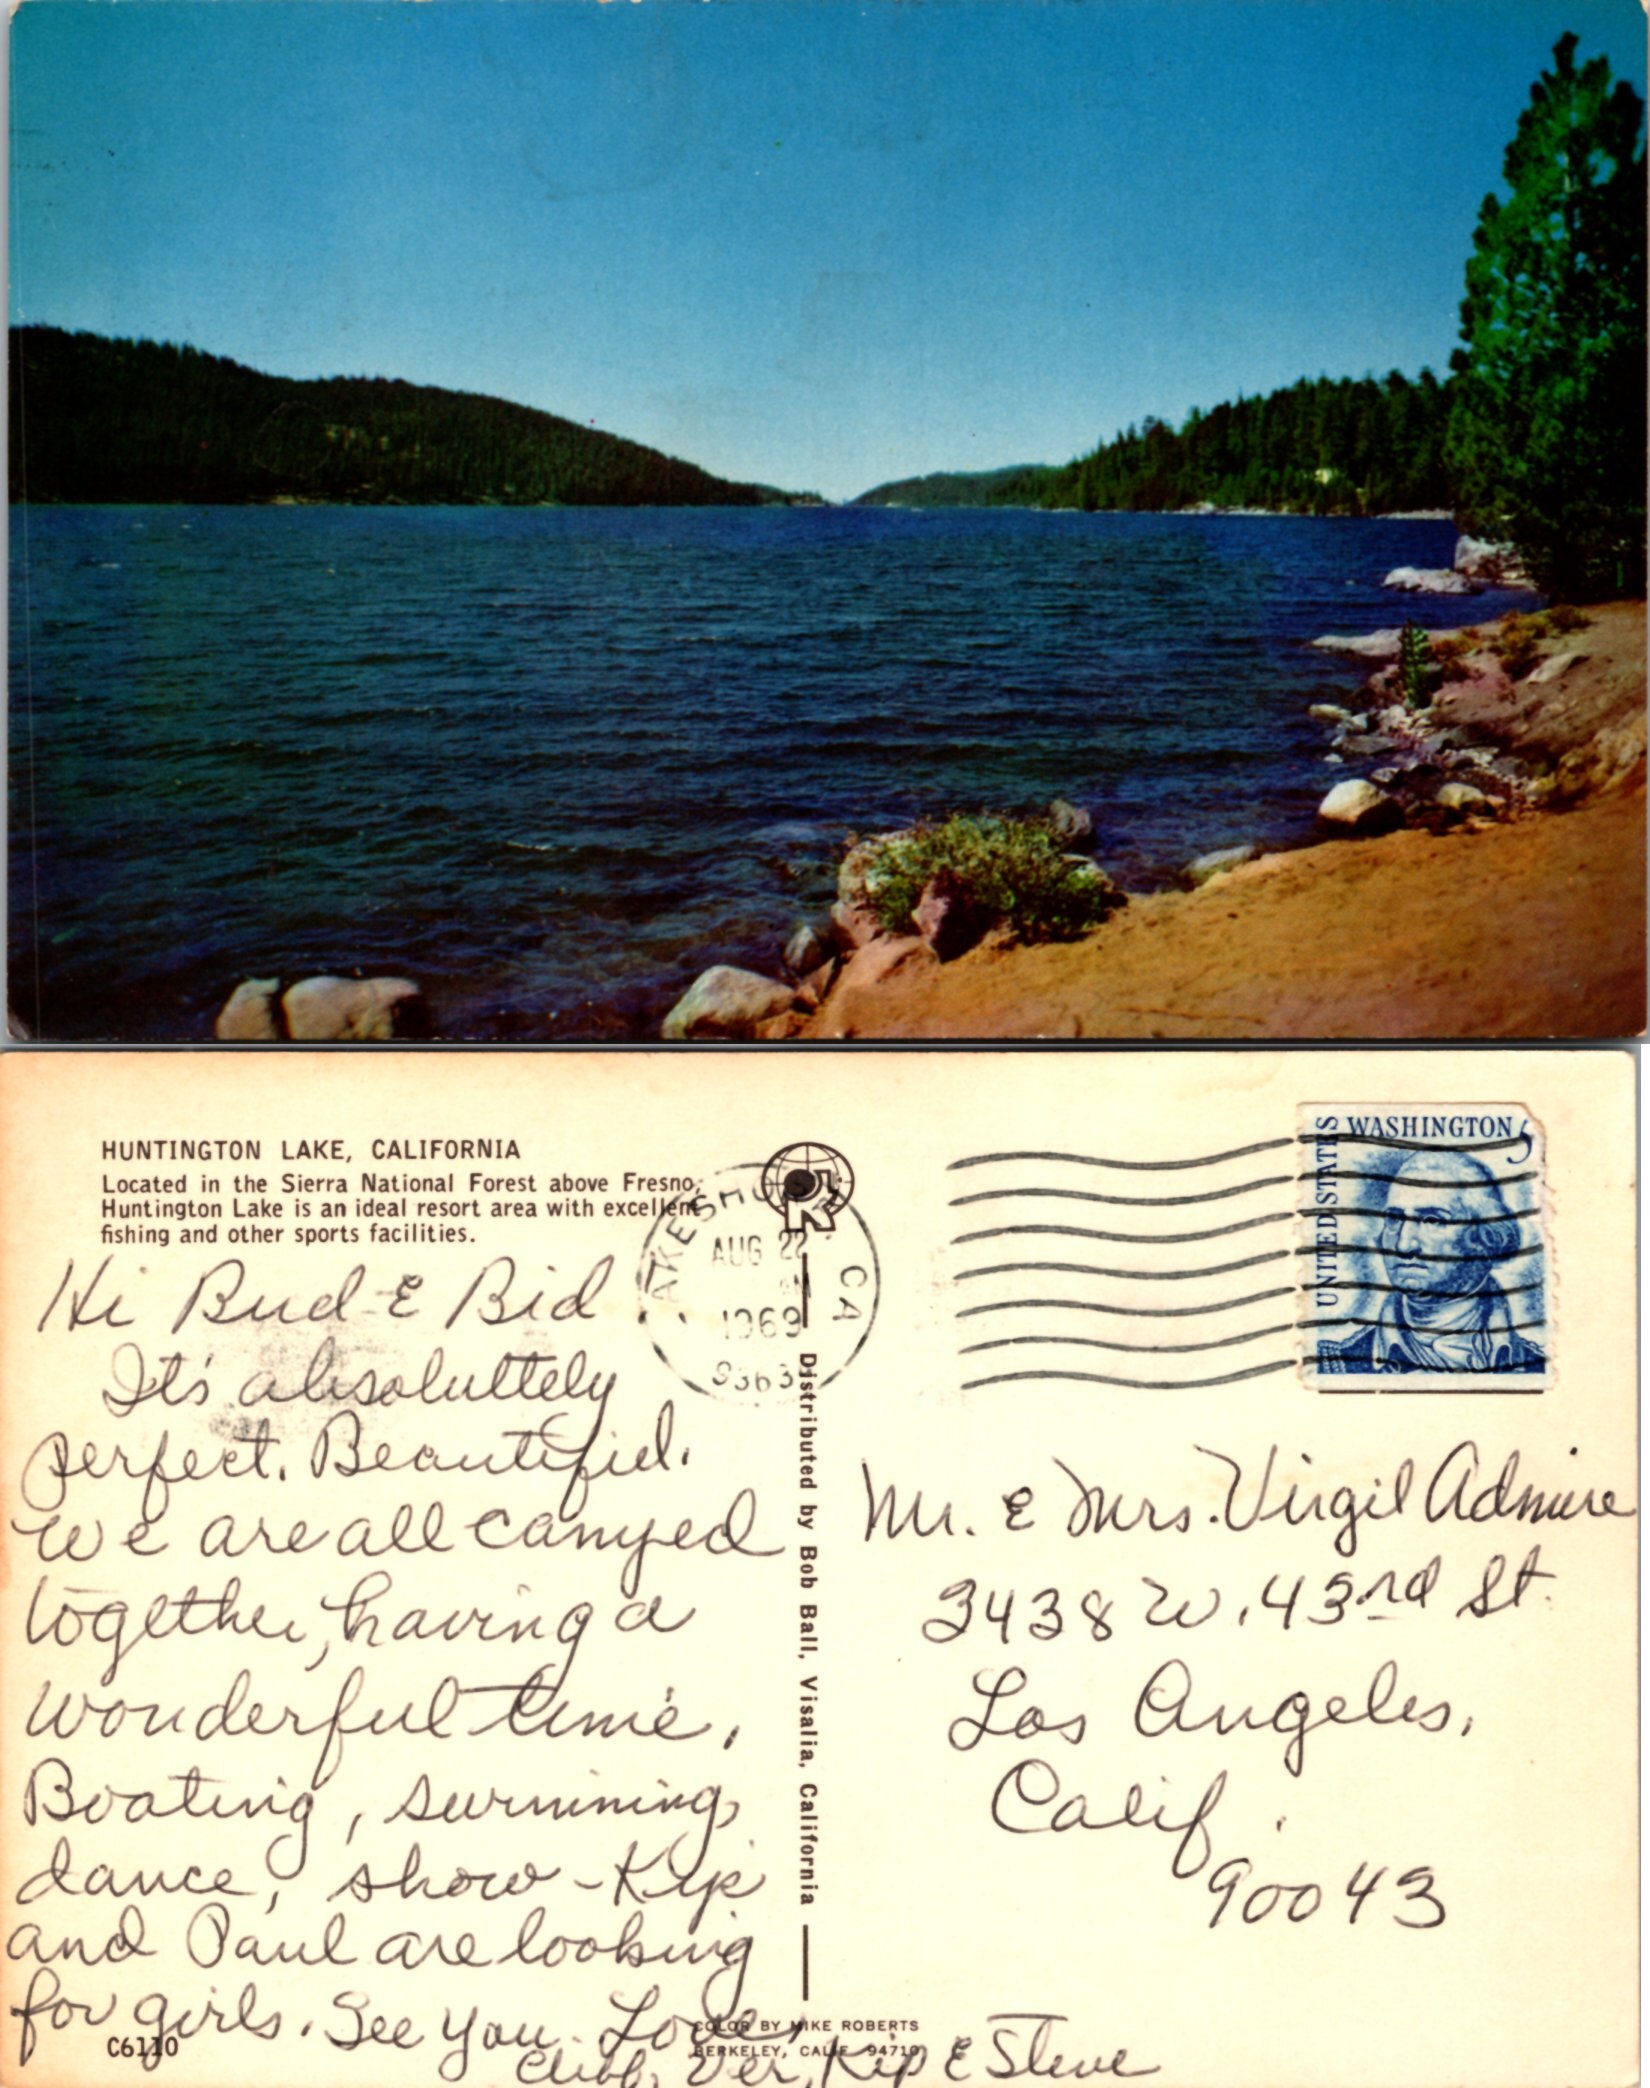 HUNTINGTON LAKE, CALIFORNIA
Located in the Sierra National Forest above Fresno,
Huntington Lake is an ideal resort area with excellent
fishing and other sports facilities.
Hi Bud & Bid
It's absoluttely
perfect. Beautiful.
We are all camped
together, having a
wonderful time.
Boating, swimming,
dance, show - Kip
and Paul are looking
for girls. See you. Love,
Ver, Kip & Steve
C6110
AUG 22
1969
CA
Distributed by Bob Ball, Visalia, California
COLOR BY MIKE ROBERTS
BERKELEY, CALIF. 94710
UNITED STATES
WASHINGTON 5
Mr. & Mrs. Virgil Admire
3438 W. 43rd St.
Los Angeles,
Calif.
90043